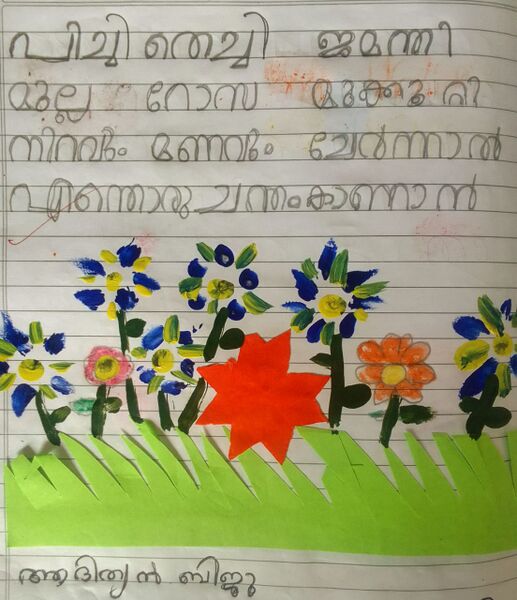 പിച്ചി തെച്ചി ജമന്തി
മുല്ല റോസ മുക്കുറ്റി
നിറവും മണവും ചേർന്നാൽ
എന്തൊരു ചന്തംകാണാൻ
ആദിത്യൻ ബിജു